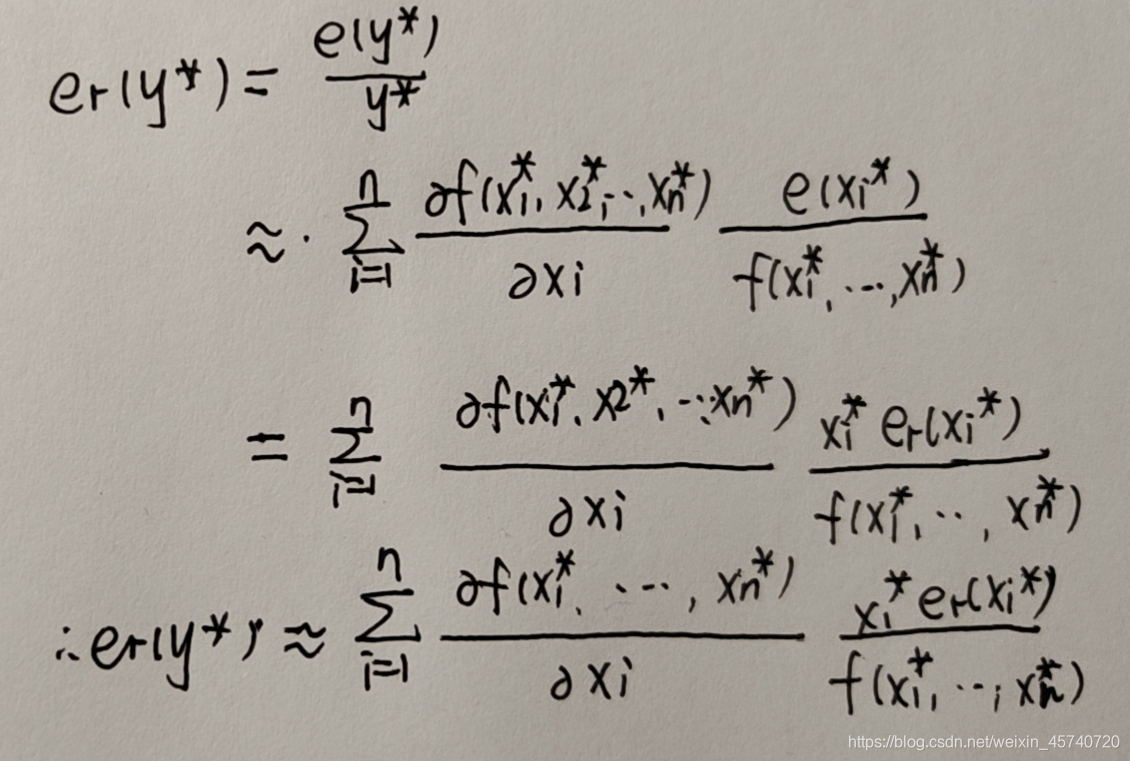 er(y*) = e(y*) / y*
≈ · ∑_{i=1}^{n} ∂f(x₁*, x₂*, ··, xn*) / ∂xi · e(xi*) / f(x₁*, ···, xn*)
= ∑_{i=1}^{n} ∂f(x₁*, x₂*, ··, xn*) / ∂xi · xi* er(xi*) / f(x₁*, ··, xn*)
∴ er(y*) ≈ ∑_{i=1}^{n} ∂f(x₁*, ···, xn*) / ∂xi · xi* er(xi*) / f(x₁*, ··, xn*)
https://blog.csdn.net/weixin_45740720